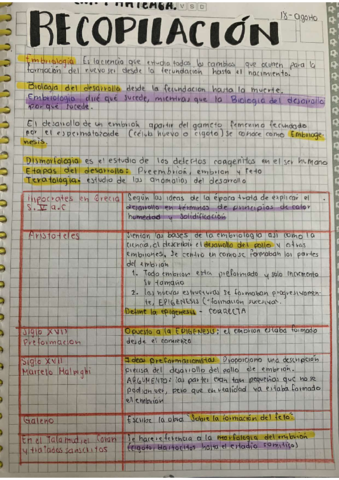 RECOPILACIÓN
18-agosto
Embriología: Es la ciencia que estudia todos los cambios que ocurren para la
formación del nuevo ser desde la fecundación hasta el nacimiento.
Biología del desarrollo: desde la fecundación hasta la muerte.
Embriología: dice qué sucede, mientras que la Biología del desarrollo
por qué sucede.
El desarrollo de un embrión apartir del gameto femenino fecundado
por el espermatozoide (célula huevo o cigoto) se conoce como Embriogé-
nesis.
Dismorfología: es el estudio de los defectos congénitos en el ser humano
Etapas del desarrollo: Preembrión, embrión y feto
Teratología: estudio de las anomalías del desarrollo
Hipócrates en Grecia
S. V a.C
Según las ideas de la época trató de explicar el
desarrollo en términos de principios de calor
humedad y solidificación
Aristóteles
Sientan las bases de la embriología así como la
ciencia, él describió el desarrollo del pollo y otros
embriones, se centró en cómo se formaban las partes
del embrión
1. Todo embrión está preformado y sólo incrementa
su tamaño
2. Las nuevas estructuras se formaban progresivamen-
te, EPIGÉNESIS ("formación sucesiva".
Definió la epigénesis - CORRECTA
Siglo XVII
Preformación
Opuesto a la EPIGÉNESIS: el embrión estaba formado
desde el comienzo
Siglo XVII
Marcelo Malpighi
Ideas Preformacionistas: Proporcionó una descripción
precisa del desarrollo del pollo de embrión.
ARGUMENTO: las partes eran tan pequeñas que no se
podían ver, pero que en realidad ya estaba formado
el embrión.
Galeno
Escribe la obra "Sobre la formación del feto"
En el Talmud, el Corán
y tratados sánscritos
Se hace referencia a la morfología del embrión